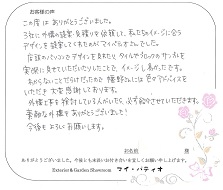 お客様の声
この度は ありがとうございました。
3社に外構の提案・見積りを依頼して、私たちのイメージに合う
デザインを提案してくれたのがマイパティオさんでした。
店頭のパソコンでデザインを見れたり、タイルやブロックのサンプルを
実際に見せていただいたりしたことで、イメージし易かったです。
わからないことだらけだったため 幾野さんには色々アドバイスを
いただき 大変感謝しております。
外構工事を検討している人がいたら、是非紹介させていただきます。
素敵な外構をありがとうございました!
今後もよろしくお願いします。
お名前 様
ありがとうございました。今後とも末永いお付き合いを宜しくお願い申し上げます。
Exterior & Garden Showroom マイ・パティオ